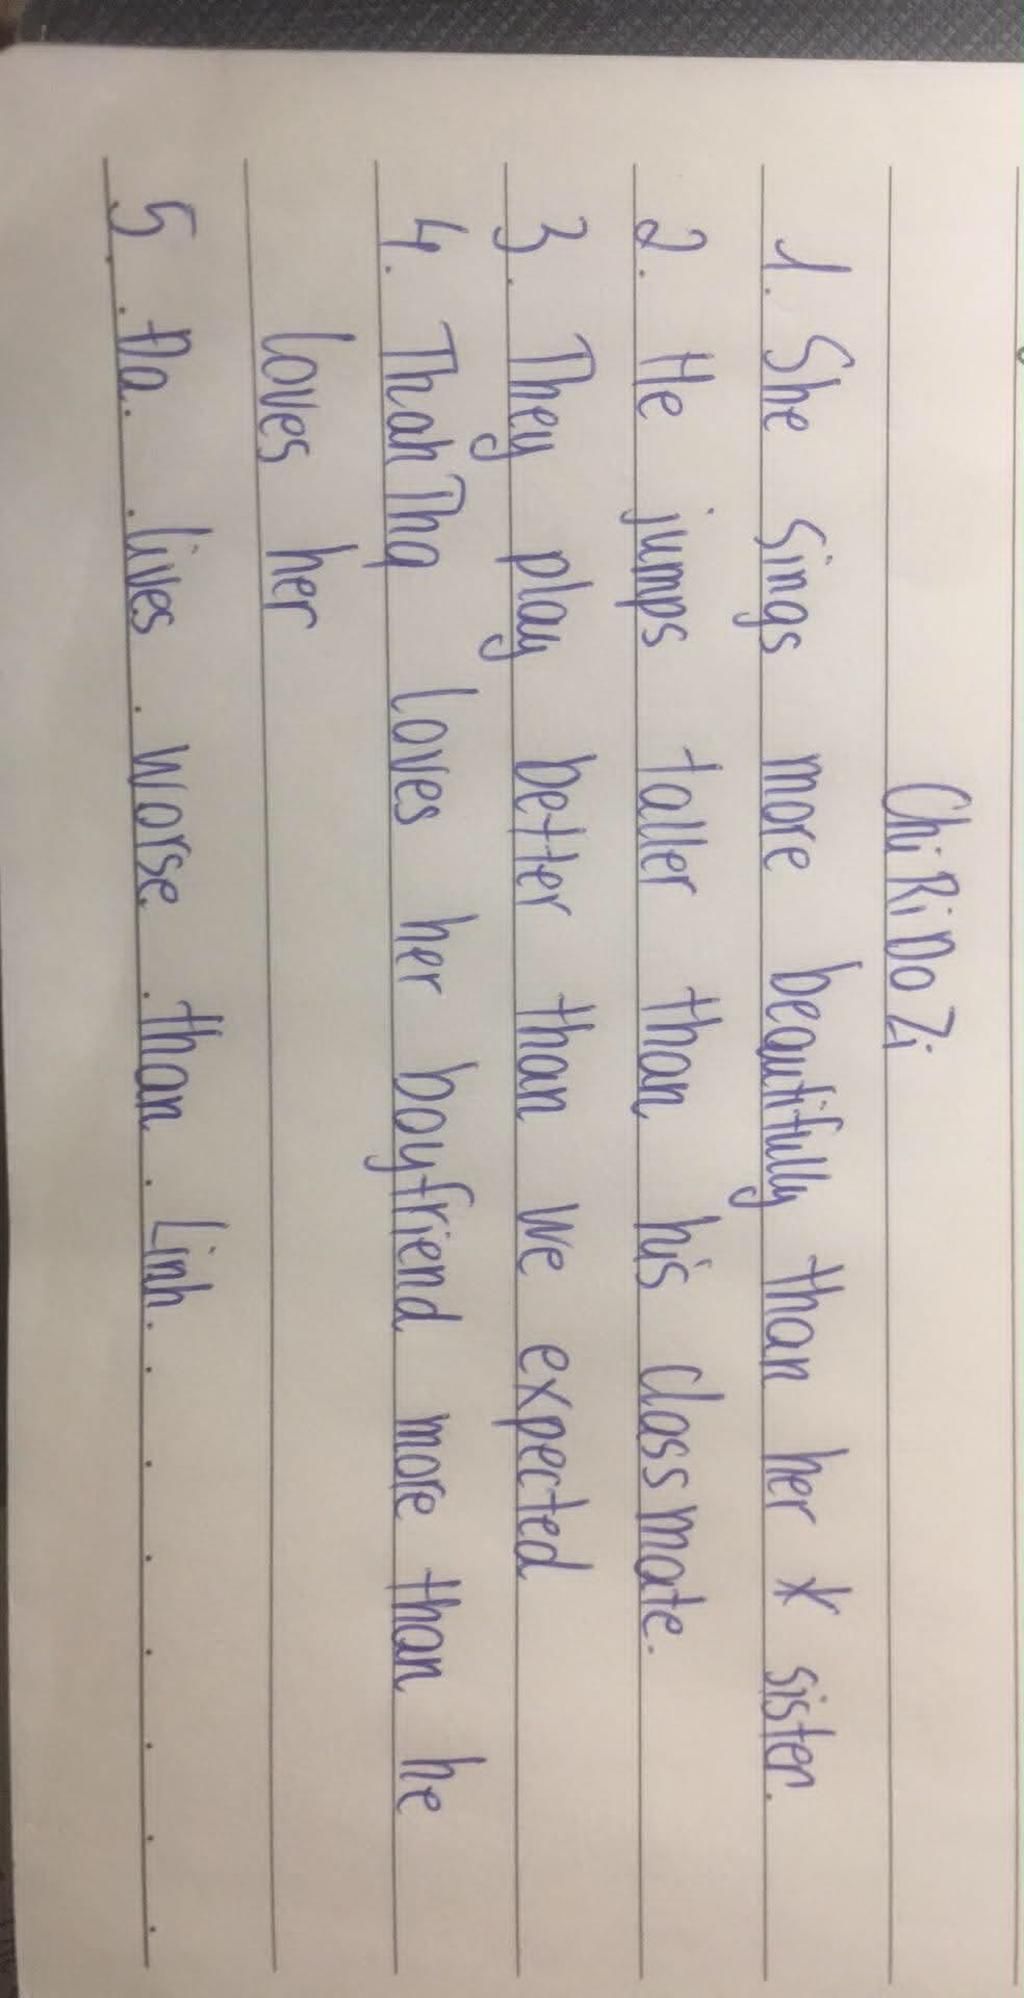 Chi Ri Do Zi
1. She sings more beautifully than her sister.
2. He jumps taller than his classmate.
3. They play better than we expected
4. Thah Tha loves her boyfriend more than he
loves her
5. Đa. lives worse than Linh.